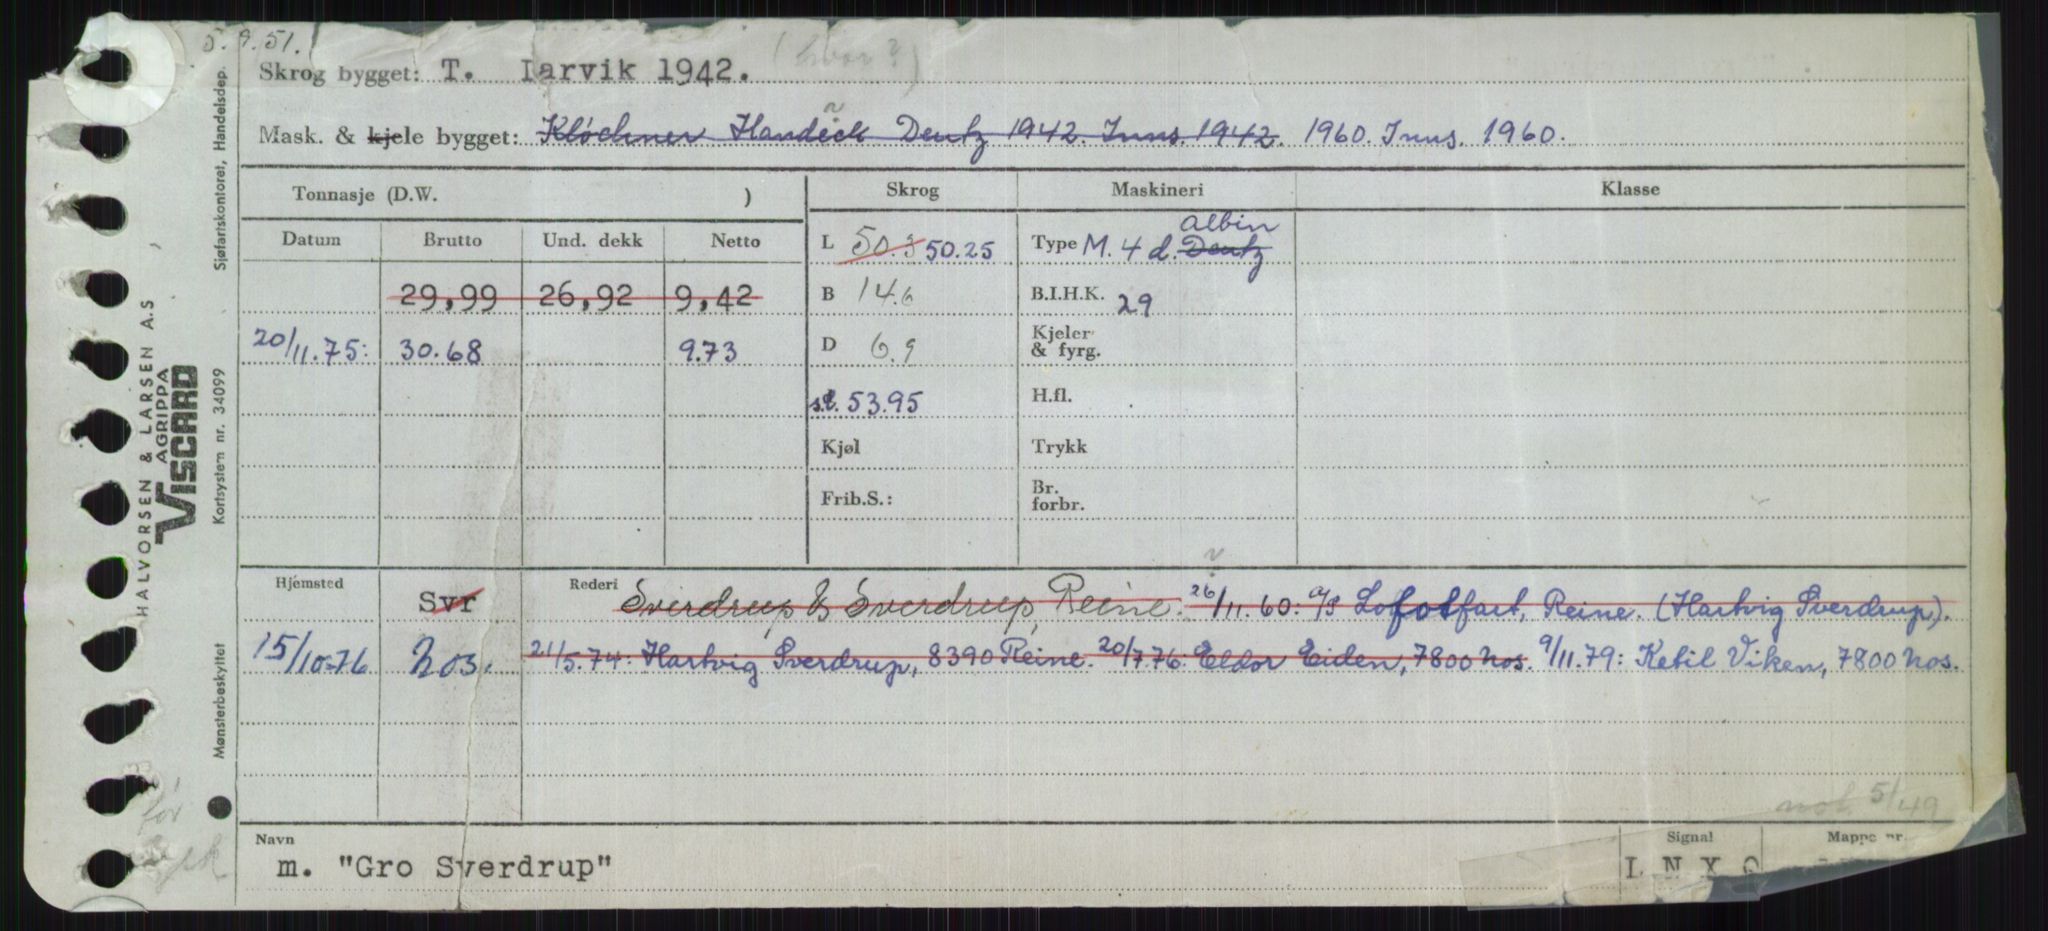 5.9.51.
Skrog bygget: T. Iarvik 1942. (hvor?)
Mask. & kjele bygget: Kløckner Handeck Deutz 1942. Inns. 1942. 1960. Inns. 1960.
Tonnasje (D.W. ) Skrog Maskineri Klasse
Datum Brutto Und. dekk Netto
L 50.3 50.25 Type M. 4 d. Deutz Albin
29,99 26,92 9,42 B 14.6 B.I.H.K. 29
20/11.75: 30.68 9.73 D 6.9 Kjeler & fyrg.
s.l. 53.95 H.fl.
Kjøl Trykk
Frib.S.: Br. forbr.
Hjemsted Svr Rederi Sverdrup & Sverdrup, Reine. 26/11.60: A/S Lofotfart, Reine. (Hartvig Sverdrup).
15/10-76 Nos. 21/5.74: Hartvig Sverdrup, 8390 Reine. 20/7.76: Eldor Eiden, 7800 Nos. 9/11.79: Ketil Viken, 7800 Nos.
5/49
Navn Signal Mappe nr.
m. "Gro Sverdrup" L N X
Sjøfartskontoret, Handelsdep.
HALVORSEN & LARSEN A.S
AGRIPPA
VISCARD
Kortsystem nr. 34099
Mønsterbeskyttet
før